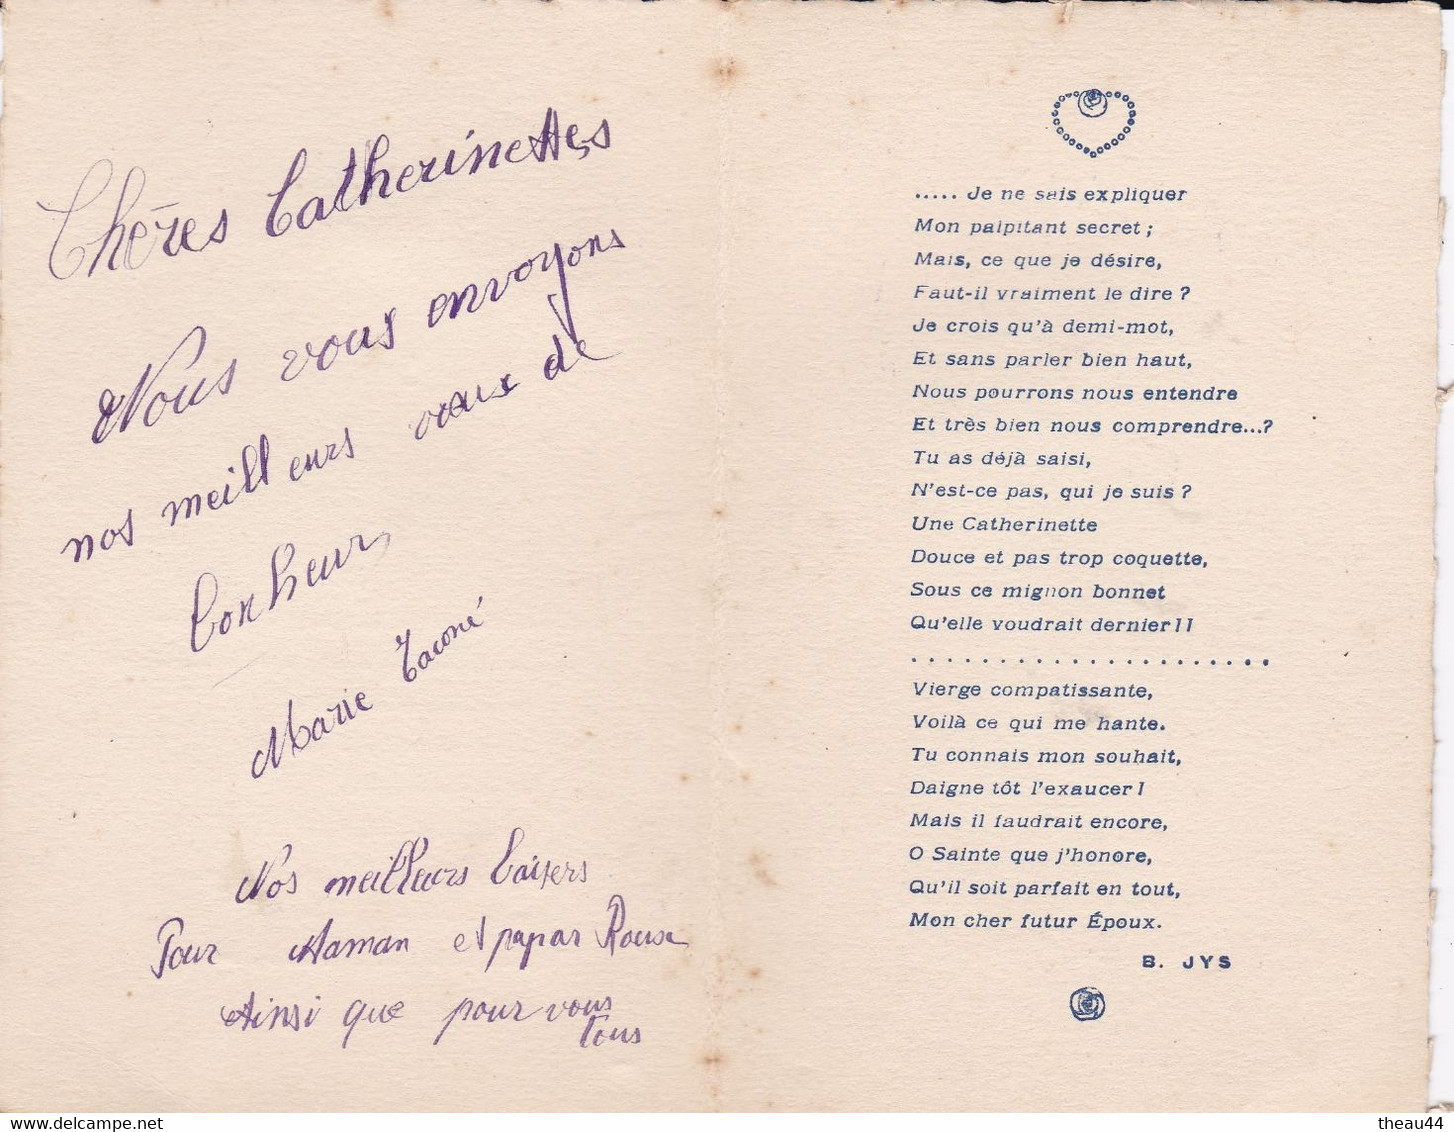 Chères Catherinettes
Nous vous envoyons
nos meilleurs vœux de
bonheur,
Marie Taconé
Nos meilleurs baisers
Pour Maman et papar
Ainsi que pour vous
Tous
..... Je ne sais expliquer
Mon palpitant secret ;
Mais, ce que je désire,
Faut-il vraiment le dire ?
Je crois qu'à demi-mot,
Et sans parler bien haut,
Nous pourrons nous entendre
Et très bien nous comprendre...?
Tu as déjà saisi,
N'est-ce pas, qui je suis ?
Une Catherinette
Douce et pas trop coquette,
Sous ce mignon bonnet
Qu'elle voudrait dernier!!
. . . . . . . . . . . . . . . . . . . . .
Vierge compatissante,
Voilà ce qui me hante.
Tu connais mon souhait,
Daigne tôt l'exaucer!
Mais il faudrait encore,
O Sainte que j'honore,
Qu'il soit parfait en tout,
Mon cher futur Époux.
B. JYS
www.delcampe.net
theau44